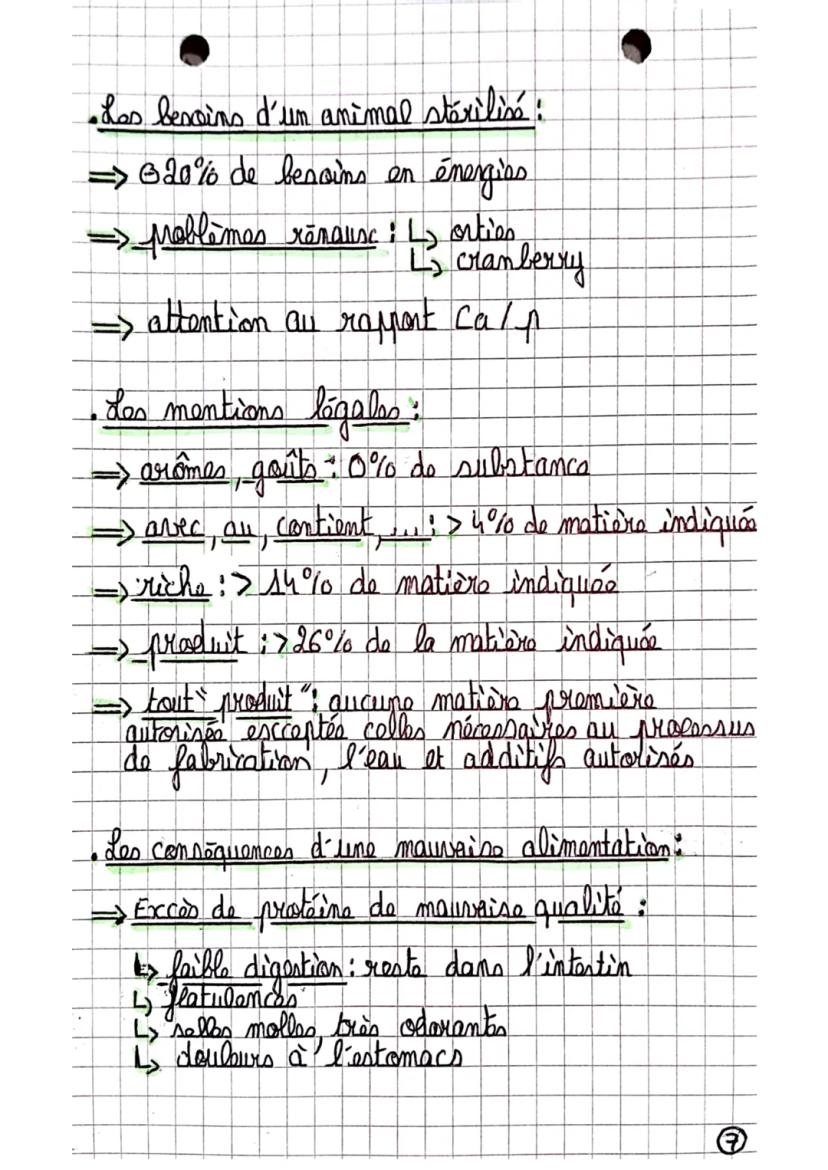 . Les besoins d'un animal stérilisé :
⇒ ⊖20% de besoins en énergies
⇒ problèmes rénaux : ↳ orties
↳ cranberry
⇒ attention au rapport Ca/p
. Les mentions légales :
⇒ arômes, goûts : 0% de substance
⇒ avec, au, contient, ... : > 4% de matière indiquée
⇒ riche : > 14% de matière indiquée
⇒ produit : > 26% de la matière indiquée
⇒ tout "produit" : aucune matière première
autorisée exceptée celles nécessaires au processus
de fabrication, l'eau et additifs autorisés
. Les conséquences d'une mauvaise alimentation :
⇒ Excès de protéine de mauvaise qualité :
↳ faible digestion : reste dans l'intestin
↳ flatulances
↳ selles molles, très odorantes
↳ douleurs à l'estomacs
7